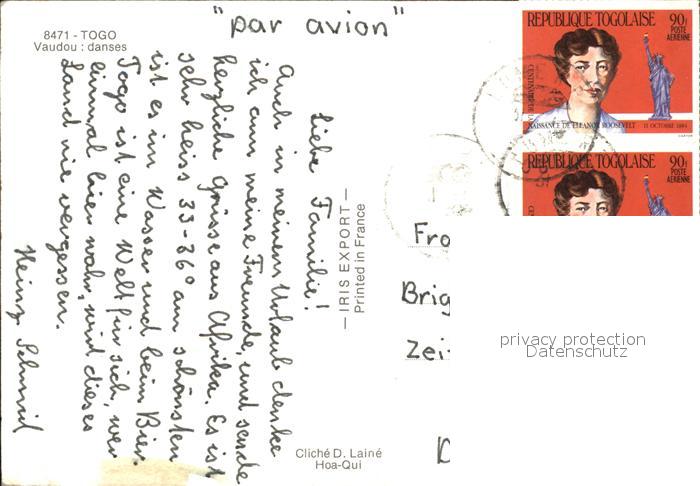 "par avion"
8471 - TOGO
Vaudou : danses
Liebe Familie!
Auch in meinem Urlaub denke
ich an meine Freunde, und sende
herzliche Grüsse aus Afrika. Es ist
sehr heiss 33-36° am schönsten
ist es im Wasser und beim Bier.
Togo ist eine Welt für sich, wer
einmal hier wahr, wird dieses
Land nie vergessen.
Heinz Schmid
— IRIS EXPORT —
Printed in France
Cliché D. Lainé
Hoa-Qui
REPUBLIQUE TOGOLAISE
90f
POSTE
AERIENNE
NAISSANCE DE ELEANOR ROOSEVELT 11 OCTOBRE 1884
REPUBLIQUE TOGOLAISE
90f
POSTE
AERIENNE
Fro
Brig
Zei
privacy protection
Datenschutz